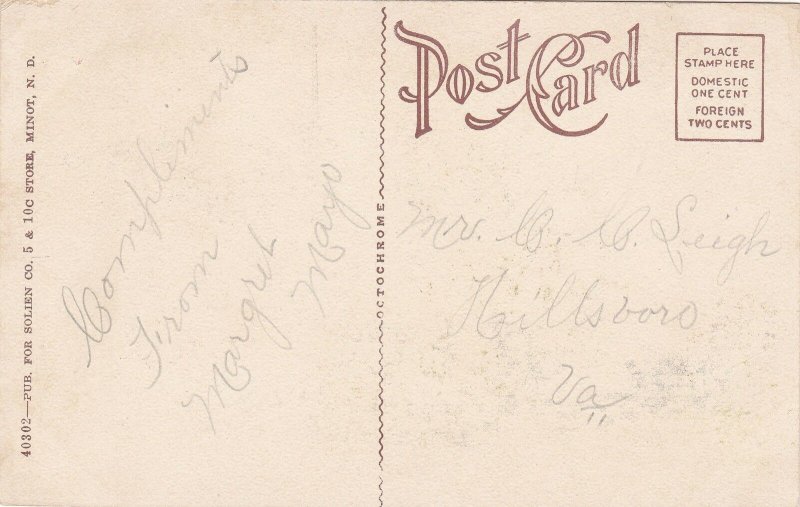 40302—PUB. FOR SOLIEN CO. 5 & 10C STORE, MINOT, N. D.
Compliments
From
Margret
Mayo
OCTOCHROME
Post Card
PLACE
STAMP HERE
DOMESTIC
ONE CENT
FOREIGN
TWO CENTS
Mr. C. C. Leigh
Hillsboro
Va